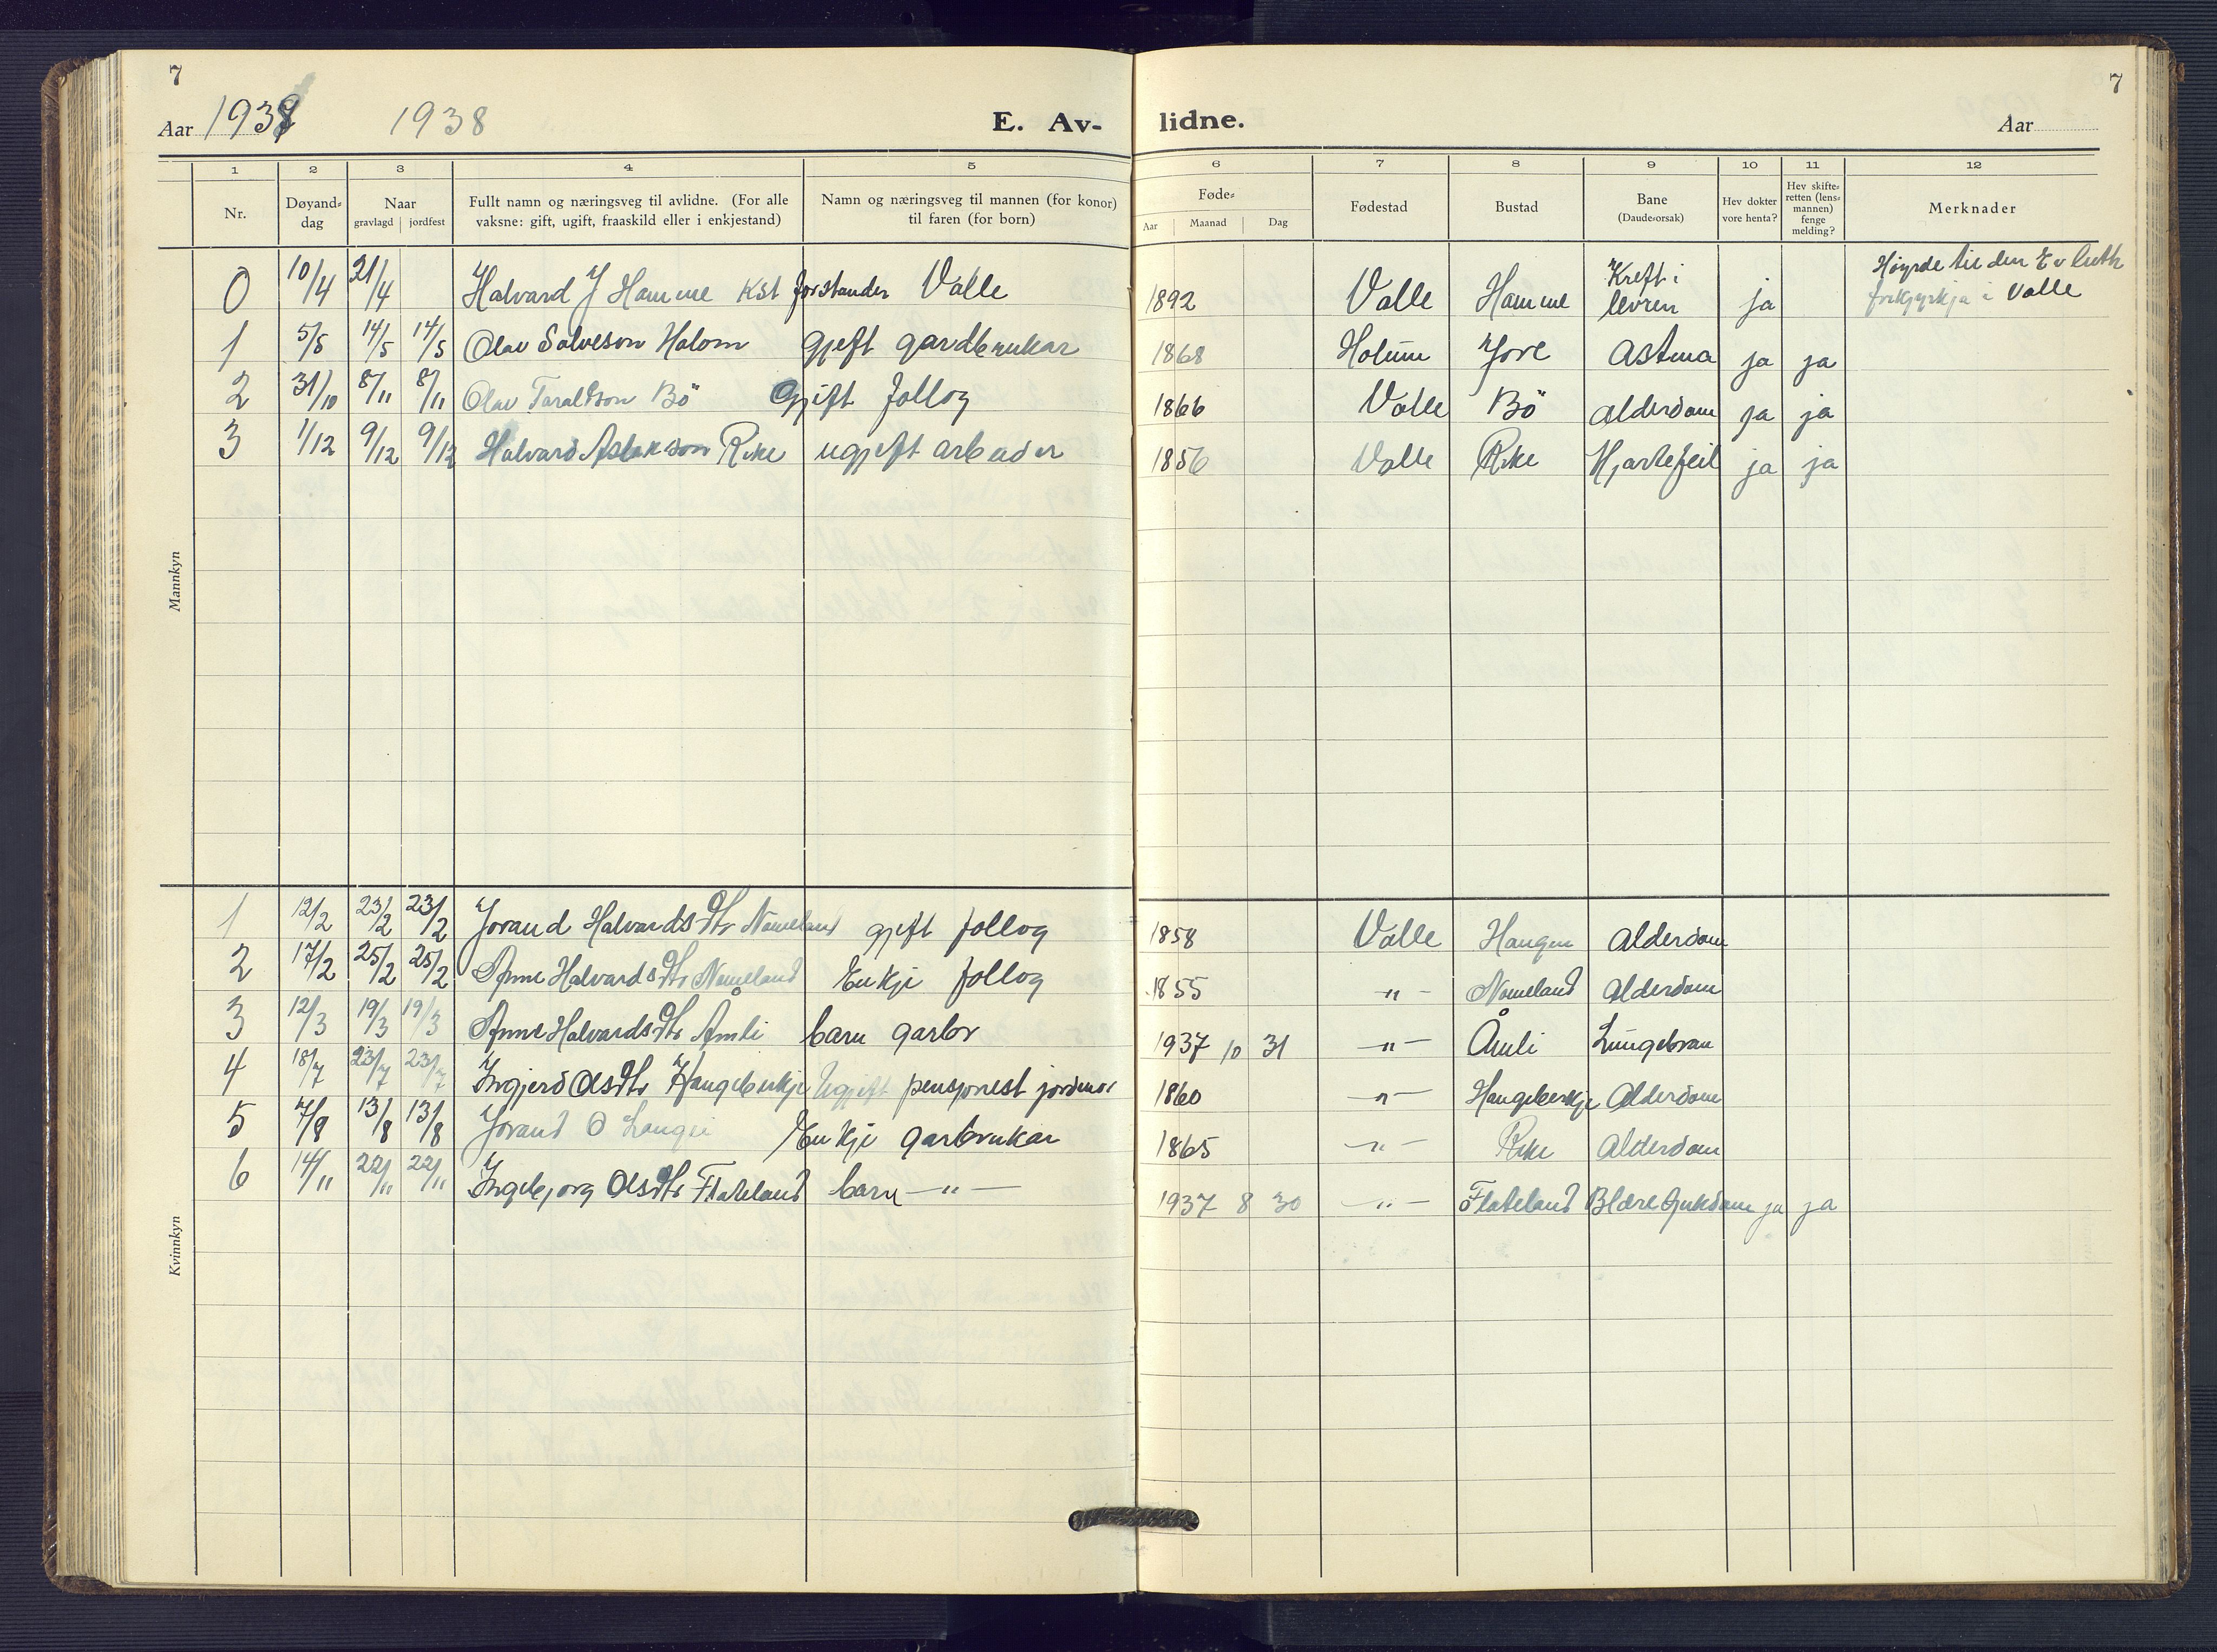 7
7
Aar 1938 1938 E. Av- lidne. Aar
1 2 3 4 5 6 7 8 9 10 11 12
Nr. Døyand-dag Naar gravlagd jordfest Fullt namn og næringsveg til avlidne. (For alle vaksne: gift, ugift, fraaskild eller i enkjestand) Namn og næringsveg til mannen (for konor) til faren (for born) Føde- Aar Maanad Dag Fødestad Bustad Bane (Daude-orsak) Hev dokter vore henta? Hev skifte-retten (lens-mannen) fenge melding? Merknader
Mannkyn
0 10/4 21/4 Halvard J Homme Kst forstander Valle 1892 Valle Homme Kreft i levren ja Høyrde til den Ev Luth frikyrkja i Valle
1 5/5 14/5 14/5 Olav Salveson Holom gjeft gardbrukar 1868 Holum Jore Astma ja ja
2 31/10 8/11 8/11 Olav Taraldson Bö Gjift follog 1866 Valle Bö Alderdom ja ja
3 1/12 9/12 9/12 Halvard Aslakson Rike ugjeft arbeider 1856 Valle Rike Hjartefeil ja ja
Kvinnkyn
1 12/2 23/2 23/2 Jorand Halvardsdtr Nomeland gjift follog 1858 Valle Haugen Alderdom
2 17/2 25/2 25/2 Anne Halvardsdtr Nomeland Enkje follog 1855 -"- Nomeland Alderdom
3 12/3 19/3 19/3 Anne Halvardsdtr Åmli barn garbr 1937 10 31 -"- Åmli Lungebran
4 18/7 23/7 23/7 Ingjerd Olsdtr Haugebirkje Ugjeft pensjonest jordmor 1860 -"- Haugebirkje Alderdom
5 7/8 13/8 13/8 Jorand O Enkje garbrukar 1865 -"- Rike Alderdom
6 14/11 22/11 22/11 Ingebjorg Olsdtr Flateland barn -"- 1937 8 30 -"- Flateland Blæresjukdom ja ja